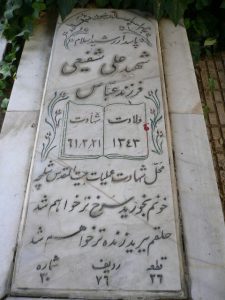 پاسدار رشید اسلام
شهید علی شفیعی
فرزند عباس
ولادت شهادت
۱۳۴۳ ۶۱/۲/۲۱
محل شهادت عملیات بیت المقدس
خونم بجوشد سرخ تر خواهم شد
حلقم ببرید زنده تر خواهم شد
قطعه ردیف شماره
۲۶ ۷۶ ۳۰